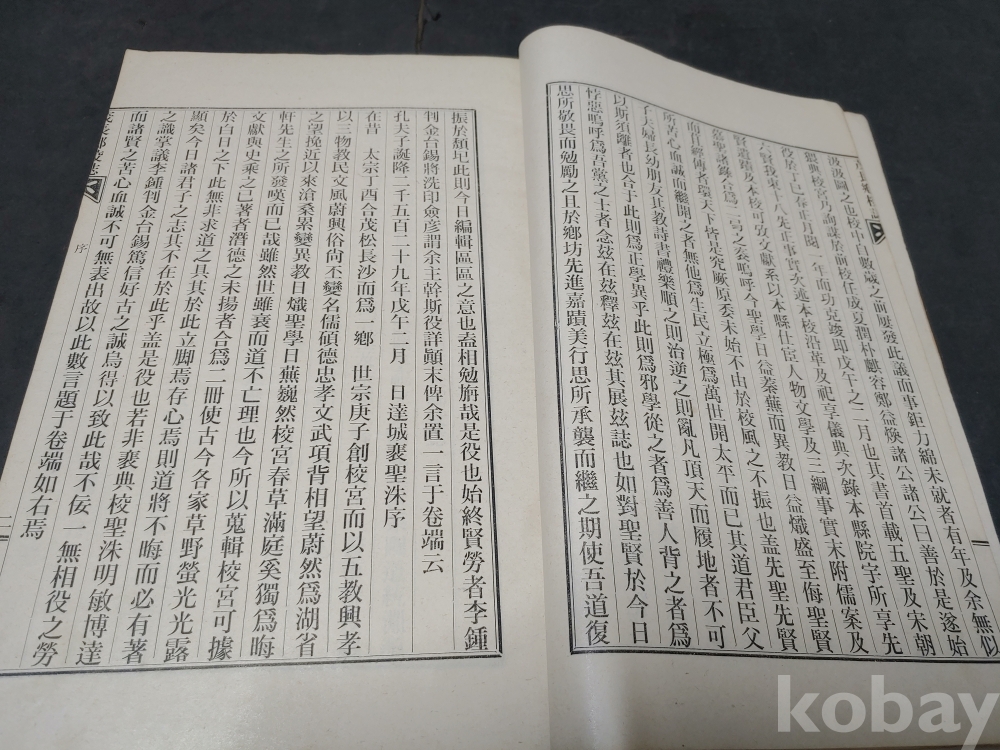 汲汲圖之也校中自數歲之前屢發此議而事鉅力綿未就者有年及余無似
猥典校宮乃詢謀於前校任成夏潤朴麒容鄭益煥諸公諸公曰善於是遂始
役於丁巳春年月閱一年而功克竣即戊午之二月也其書首載五聖及宋朝
六賢我東十八先正事實次述本校沿革及祀享儀典次錄本縣院宇所享先
賢道蹟及本校可攷文獻系以本縣仕宦人物文學及三綱事實末附儒案及
慕聖諸錄合爲二弓之嗚呼今聖學日益蓁蕪而異教日益熾盛至侮聖賢
而侍經傳者環天下皆是究厥原委未始不由於校風之不振也盖先聖先賢
所苦心血誠而繼開之者無他爲生民立極爲萬世開太平而已其道君臣父
子夫婦長幼朋友其教詩書禮樂順之則治逆之則亂凡頂天而履地者不可
以斯須離者也合于此則爲正學異乎此則爲邪學從之者爲善人背之者爲
悖惡嗚呼爲吾黨之士者念玆在玆釋玆在玆其展玆誌也如對聖賢於今日
思所敬畏而勉勵之且於鄉坊先進嘉蹟美行思所承襲而繼之期使吾道復
振於頹圮此則今日編輯區區之意也盍相勉旃哉是役也始終賢勞者李鍾
判金台錫將洗印僉彦謂余主幹斯役詳顚末俾余置一言于卷端云
孔夫子誕降二千五百二十九年戊午二月 日達城裵聖洙序
在昔 太宗丁酉合茂松長沙而爲一鄉 世宗庚子創校宮而以五教興孝
以三物教民文風蔚興俗尙丕變名儒碩德忠孝文武項背相望蔚然爲湖省
之望挽近以來滄桑累變異教日熾聖學日蕪巍然校宮春草滿庭奚獨爲晦
軒先生之所發嘆而已哉雖然世雖衰而道不亡理也今所以蒐輯校宮可據
文獻與史乘之已著者潛德之未揚者合爲二冊使古今各家草野螢光光露
於白日之下此無非求道之具其於此立脚焉存心焉則道將不晦而必有著
顯矣今日諸君子之志其不在於此乎盖是役也若非裵典校聖洙明敏博達
之識掌議李鍾判金台錫篤信好古之誠烏得以致此哉不佞一無相役之勞
而諸賢之苦心血誠不可無表出故以此數言題于卷端如右焉
序
kobay